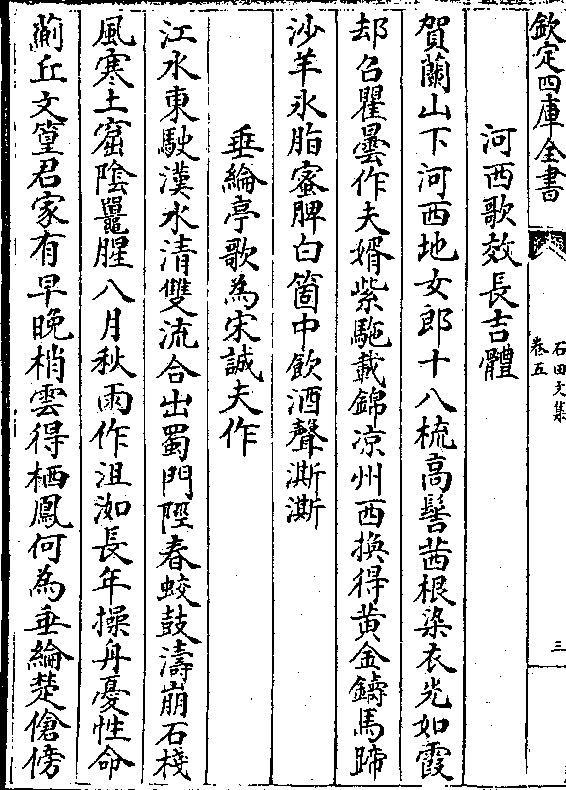 欽定四庫全書
石田文集
卷五
三
河西歌效長吉體
賀蘭山下河西地女郎十八梳高髻茜根染衣光如霞
却召瞿曇作夫婿紫駞載錦凉州西換得黄金鑄馬蹄
沙羊氷脂蜜脾白箇中飲酒聲澌澌
垂綸亭歌為宋誠夫作
江水東駛漢水清雙流合出蜀門陘春蛟鼓濤崩石棧
風寒土窟陰鼉腥八月秋雨作沮洳長年操舟憂性命
薊丘文篁君家有早晚梢雲得栖鳳何為垂綸楚傖傍